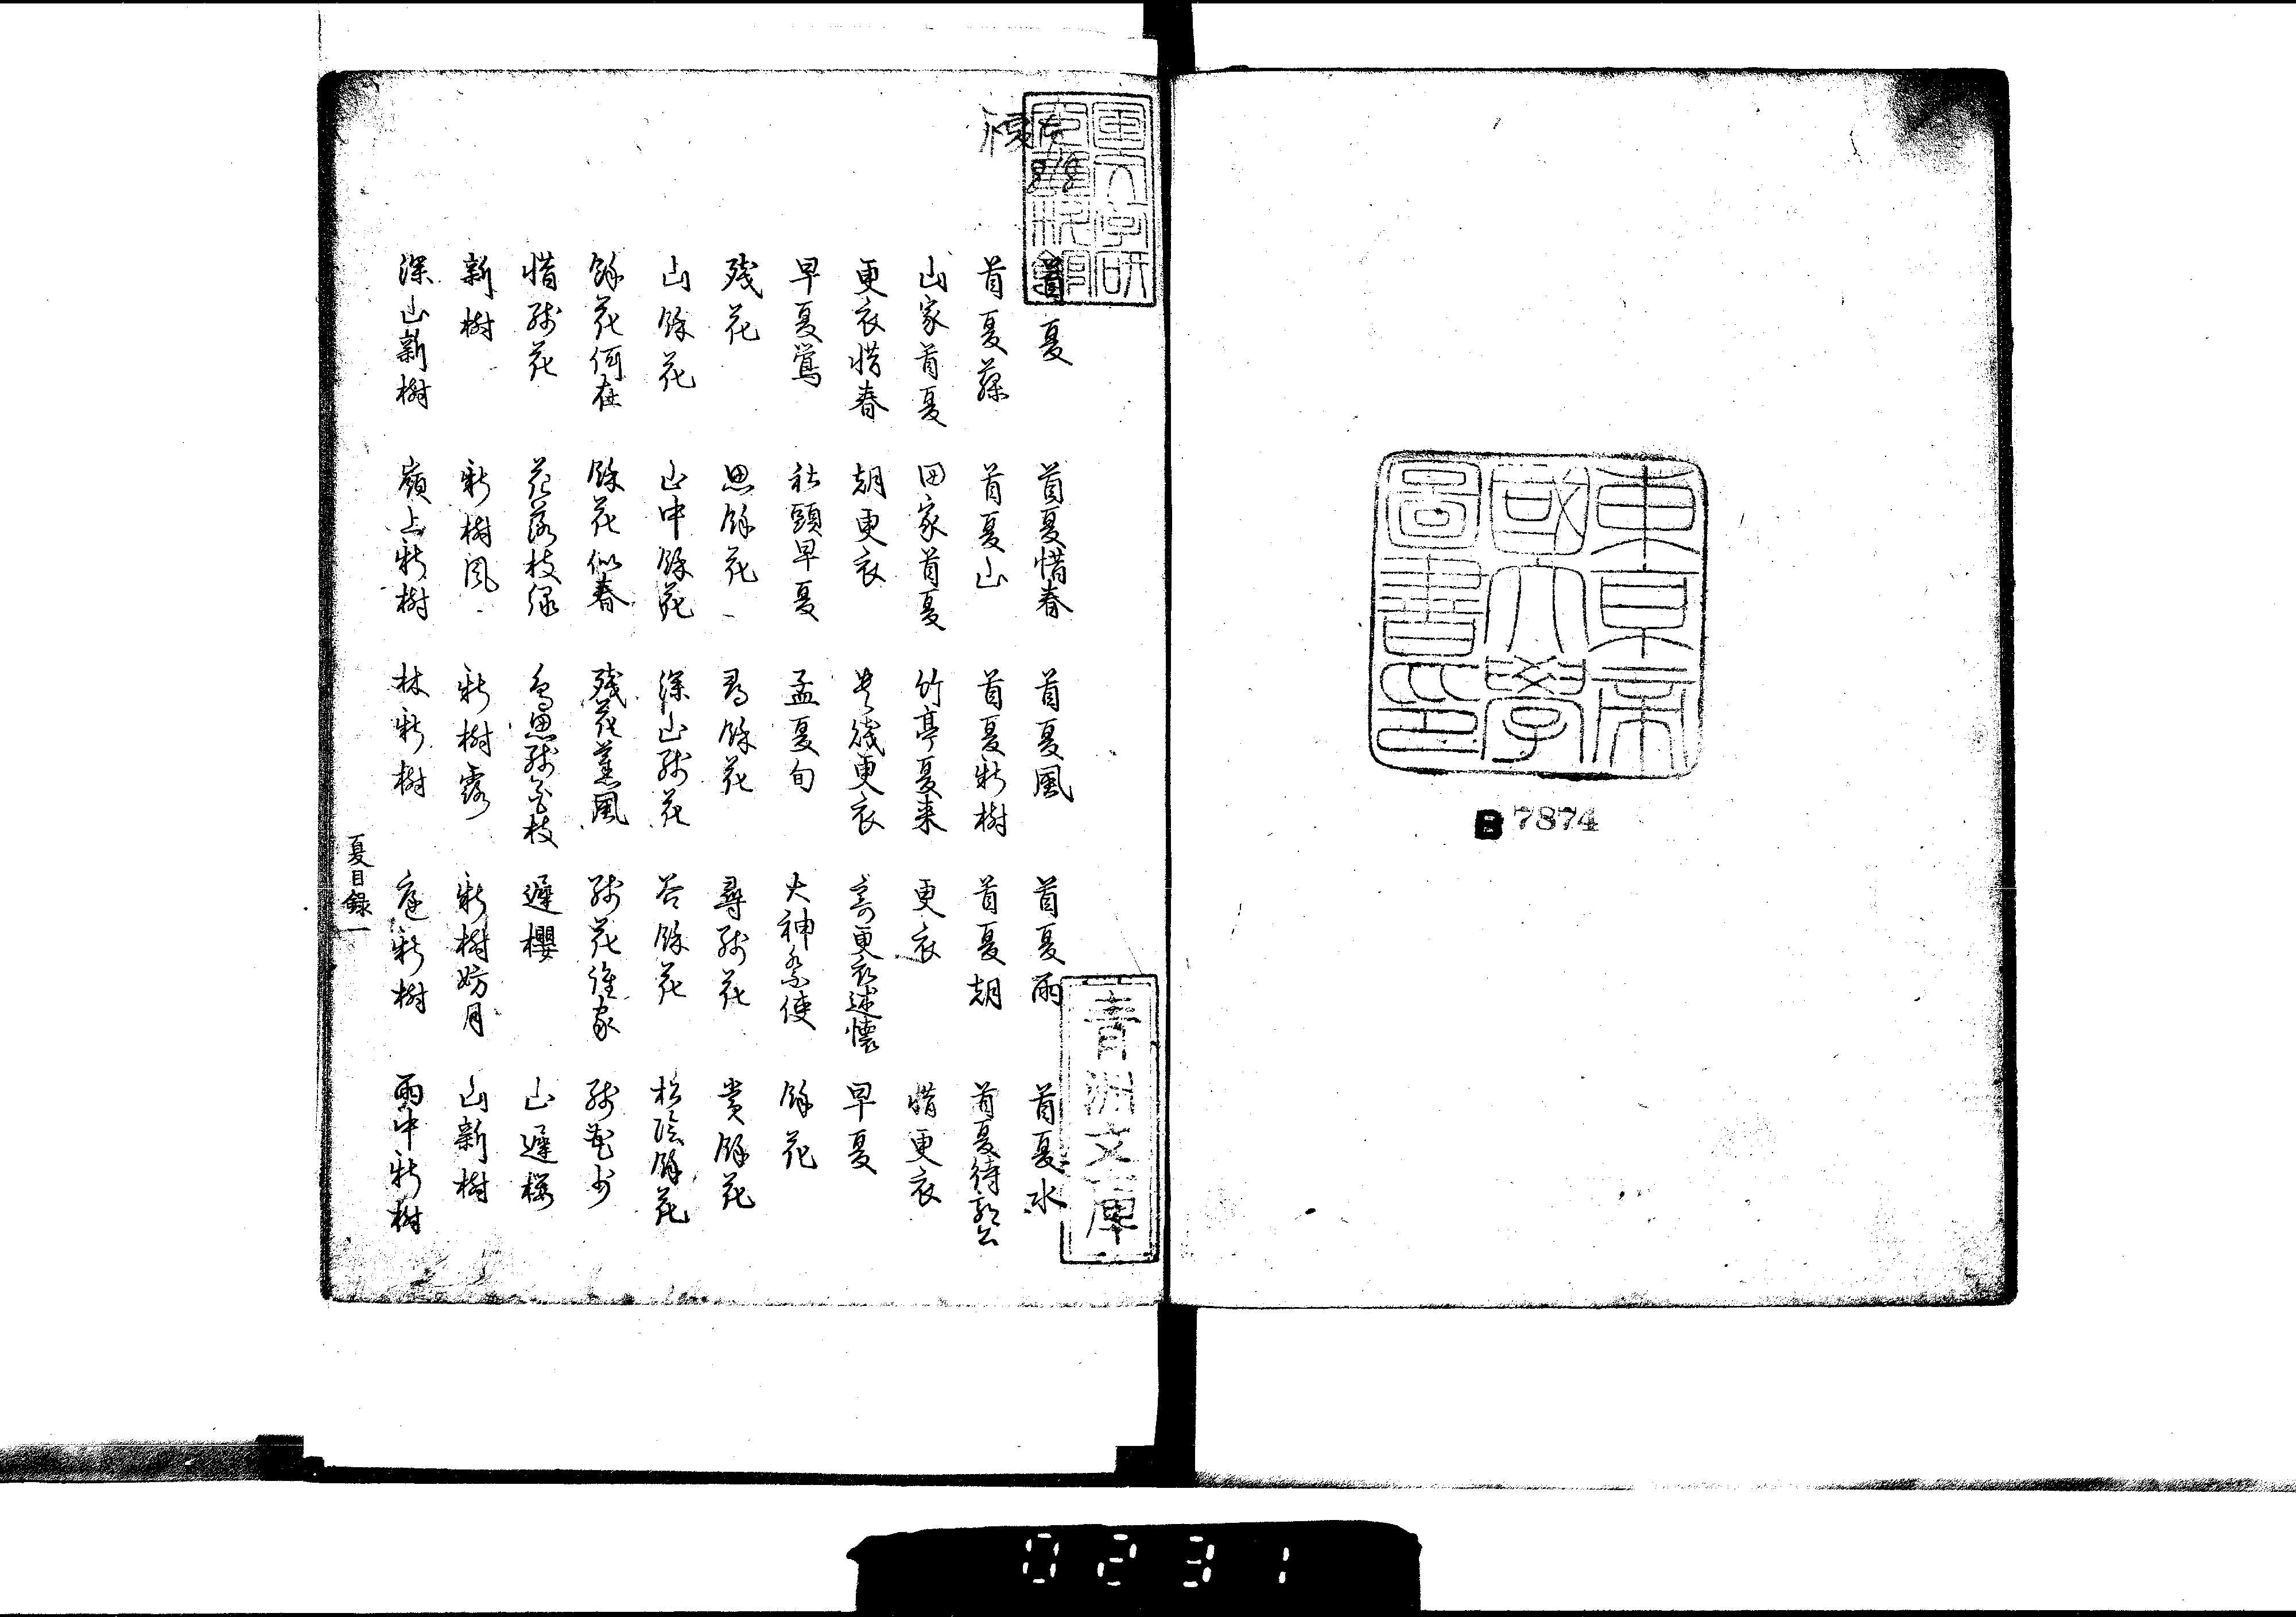 東京帝
國大學
圖書印
B 7874
青洲文庫
首夏 首夏惜春 首夏風 首夏雨 首夏水
首夏藤 首夏山 首夏新樹 首夏朝 首夏待郭公
山家首夏 田家首夏 竹亭夏来 更衣 惜更衣
更衣惜春 朝更衣 更衣 寄更衣述懐 早夏
早夏鶯 社頭早夏 孟夏旬 大神祭使 餘花
残花 思餘花 尋餘花 尋残花 賞餘花
山餘花 山中餘花 深山残花 谷餘花 松陰餘花
餘花何在 餘花似春 残花薫風 残花誰家 残花少
惜残花 花落枝緑 遅櫻 山遅桜
新樹 新樹風 新樹露 新樹妨月 山新樹
深山新樹 嶺上新樹 林新樹 庭新樹 雨中新樹
夏目録一
0231